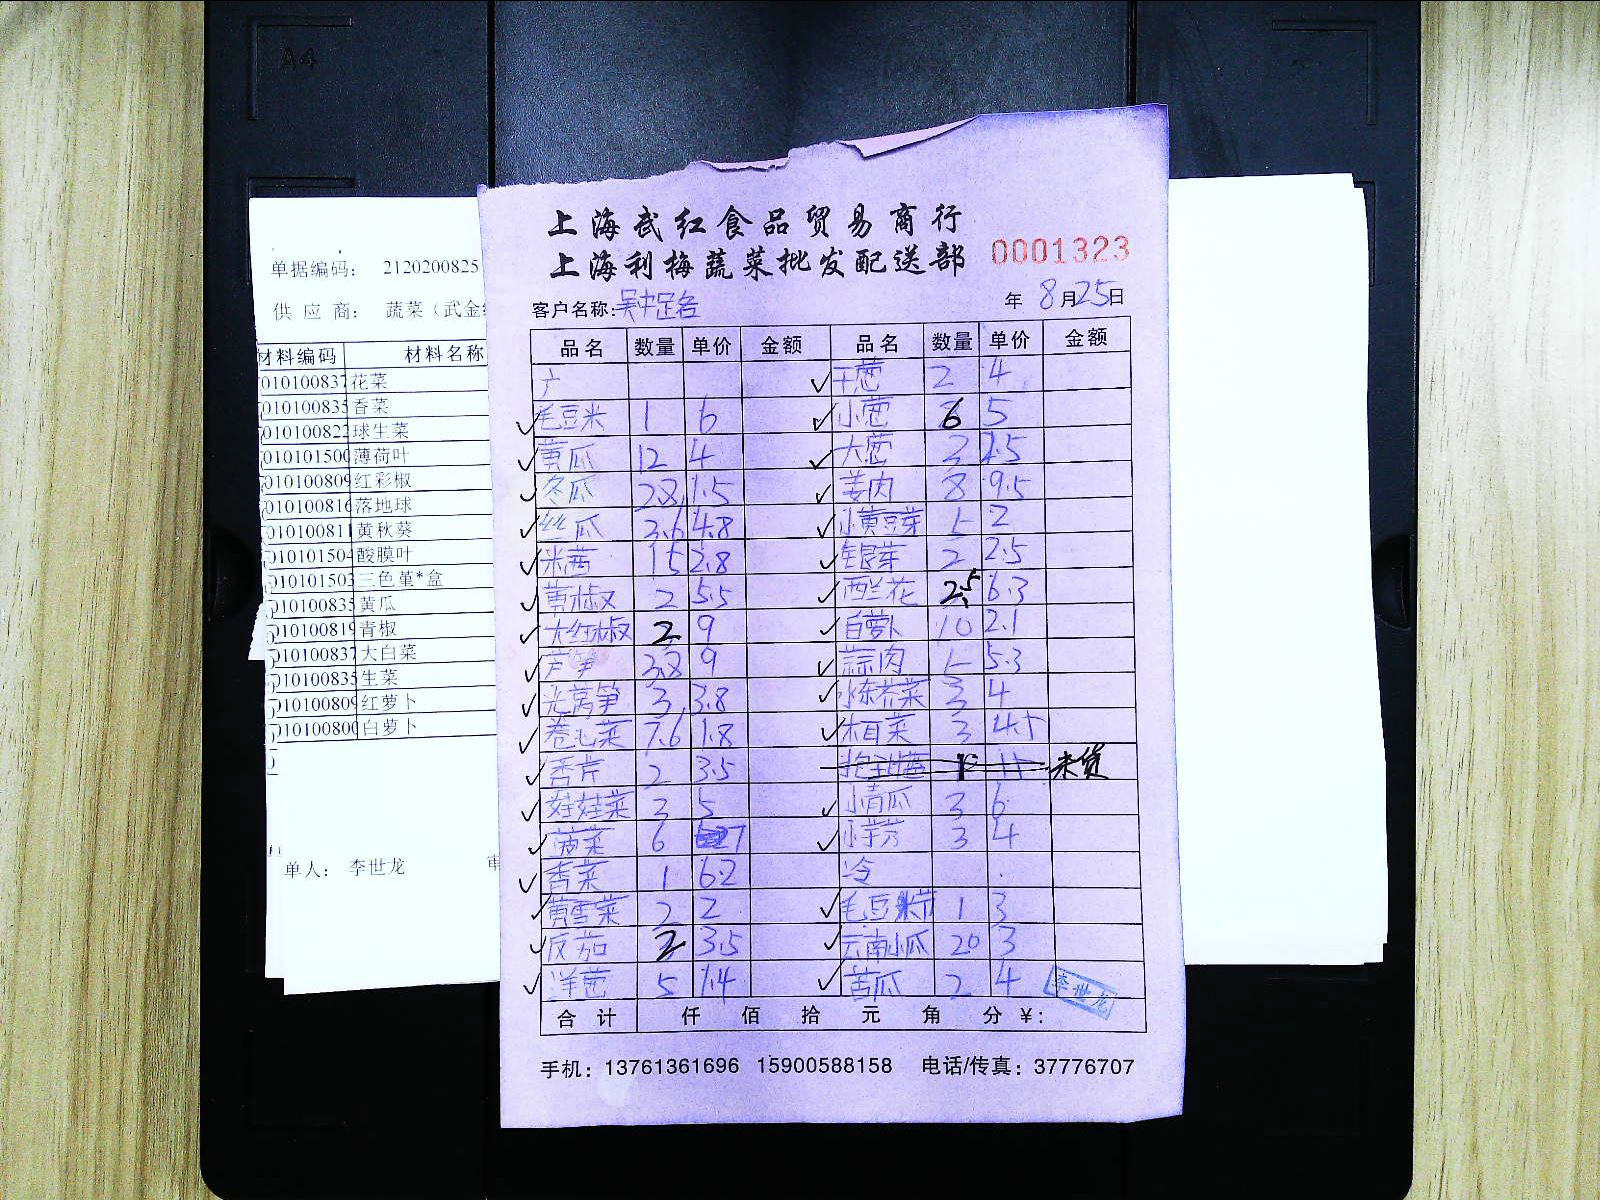 A4
上海武红食品贸易商行
上海利梅蔬菜批发配送部 0001323
客户名称: 年 8月25日
品名 数量 单价 金额 品名 数量 单价 金额
广 干葱 2 4
毛豆米 1 6 小葱 6 5
黄瓜 12 4 大葱 3
冬瓜 28 1.5 姜肉 8 9.5
丝瓜 3.6 4.8 小黄豆芽 5 2
米茜 15 2.8 银芽 2 2.5
黄椒 2 5.5 西兰花 2.5 6.3
大红椒 2 9 白萝卜 10 2.1
芦笋 3.8 9 蒜肉 5 5.3
光莴笋 3 3.8 水东芥菜 3 4
卷心菜 7.6 1.8 木耳菜 3 4.5
香芹 2 3.5 11 未货
娃娃菜 3 5 小青瓜 3 6
菠菜 6 7 小芋艿 3 4
香菜 1 6.2 冷
黄雪菜 2 2 毛豆米节 1 3
反茄 2 3.5 云南小瓜 20 3
洋葱 5 1.4 苦瓜 2 4
李世龙
合计 仟 佰 拾 元 角 分 ¥:
手机: 13761361696 15900588158 电话/传真: 37776707
单据编码: 2120200825
供应商: 蔬菜（武金
材料编码 材料名称
010100837 花菜
010100835 香菜
010100822 球生菜
010101500 薄荷叶
010100809 红彩椒
010100816 落地球
010100811 黄秋葵
010101504 酸膜叶
010101503 三色堇*盒
010100835 黄瓜
010100819 青椒
010100837 大白菜
010100835 生菜
010100809 红萝卜
010100800 白萝卜
单人: 李世龙 审